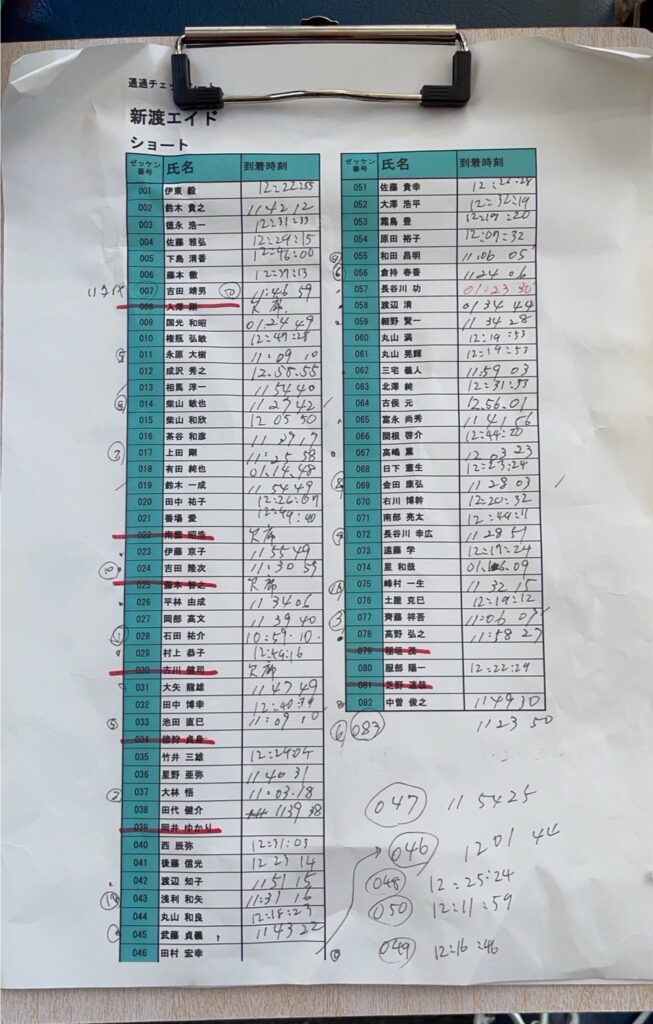 通過チェックシート
新渡エイド
ショート
ゼッケン番号 氏名 到着時刻
001 伊東 毅 12:22:55
002 鈴木 貴之 11 42 12
003 徳永 浩一 12:31:33
004 佐藤 雅弘 12:29:15
005 下島 清香 12:46:00
006 藤本 徹 12:37:13
007 吉田 靖男 11:46 59
008 入澤 剛 欠席
009 国光 和昭 01.24 49
010 権瓶 弘敏 12:47:28
011 永原 大樹 11:09 10
012 成沢 秀之 12.58.55
013 相馬 淳一 11 54 40
014 柴山 敏也 11 27 42
015 柴山 和欣 12 05 50
016 茶谷 和彦 11 27 17
017 上田 剛 11:25 58
018 有田 純也 01.14.48
019 鈴木 一成 11 54 49
020 田中 祐子 12:26:07
021 番場 愛 12:44:40
022 南雲 昭浩 欠席
023 伊藤 京子 11 55 49
024 吉田 隆次 11:30 59
025 藤本 智之 欠席
026 平林 由成 11 34 06
027 岡部 高文 11 39 40
028 石田 祐介 10:59.10.
029 村上 恭子 12:54:16
030 古川 健司 欠席
031 大矢 龍雄 11 47 49
032 田中 博幸 12:40:39
033 池田 直巳 11:09 10
034 猪狩 貞身
035 竹井 三雄 12:29 04
036 星野 亜弥 11 40 31
037 大林 悟 11:03.18
038 田代 健介 11 39 38
039 岡井 ゆかり
040 西 辰弥 12:31:03
041 後藤 信光 12 23 14
042 渡辺 知子 11 51 15
043 浅利 和矢 11:31 16
044 丸山 和良 12:18:23
045 武藤 貞義 11 43 22
046 田村 宏幸
ゼッケン番号 氏名 到着時刻
051 佐藤 貴幸 12:26:28
052 大澤 浩平 12:32:19
053 霜鳥 豊 12:19:20
054 原田 裕子 12:07:32
055 和田 昌明 11:06 05
056 倉持 春香 11 24 06
057 長谷川 功 01:23 30
058 渡辺 清 01 34 44
059 細野 賢一 11 34 28
060 丸山 満 12:19:53
061 丸山 晃輝 12:19:53
062 三宅 義人 11:59 03
063 北澤 純 12:31:53
064 古俣 元 12.56.01
065 富永 尚秀 11 41 56
066 関根 啓介 12:44:20
067 高嶋 薫 12 03 23
068 日下 憲生 12:23:24
069 金田 康弘 11 28 03
070 右川 博幹 12:20:32
071 南部 亮太 12:44:11
072 長谷川 幸広 11 28 51
073 遠藤 学 12:17:24
074 星 和哉 01.16.09
075 峰村 一生 11 32 15
076 土屋 克巳 12:19:12
077 齊藤 祥吾 11:06 07
078 高野 弘之 11:58 27
079 稲垣 茂
080 服部 陽一 12:22:29
081 芝野 達哉
082 中曽 俊之 11 49 30
⑥ 083 11 23 50
047 11 54 25
046 12 01 44
048 12:25:24
050 12:11:59
049 12:16:46